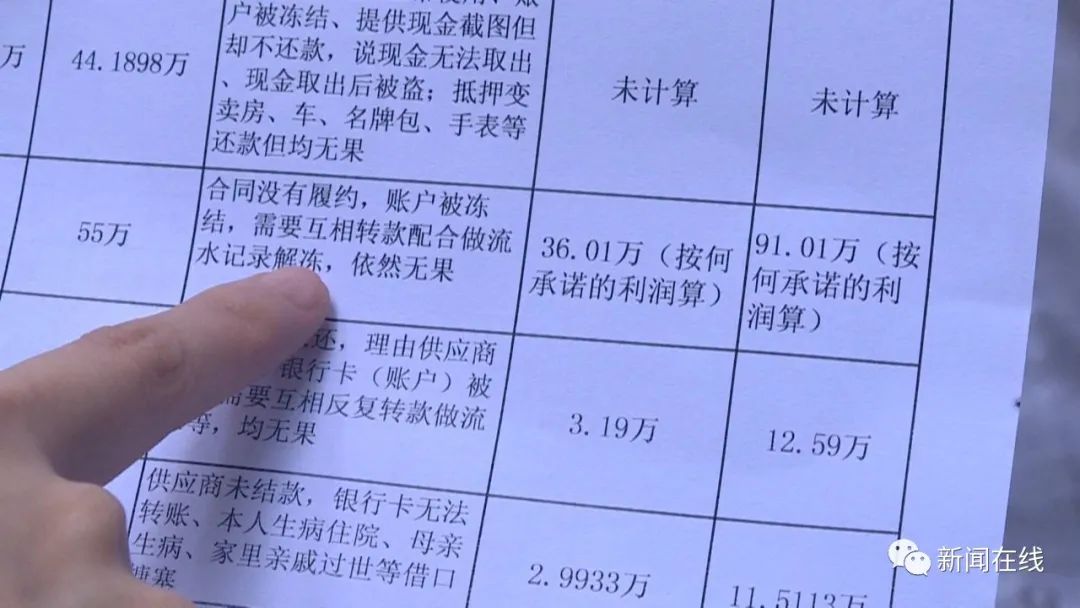 户被冻结、提供现金截图但
却不还款，说现金无法取出
、现金取出后被盗；抵押变
卖房、车、名牌包、手表等
还款但均无果
万
44.1898万
未计算
未计算
55万
合同没有履约，账户被冻
结，需要互相转款配合做流
水记录解冻，依然无果
36.01万（按何
承诺的利润算）
91.01万（按
何承诺的利
润算）
还，理由供应商
银行卡（账户）被
需要互相反复转款做流
等，均无果
3.19万
12.59万
供应商未结款，银行卡无法
转账、本人生病住院、母亲
生病、家里亲戚过世等借口
搪塞
2.9933万
11.5113万
新闻在线